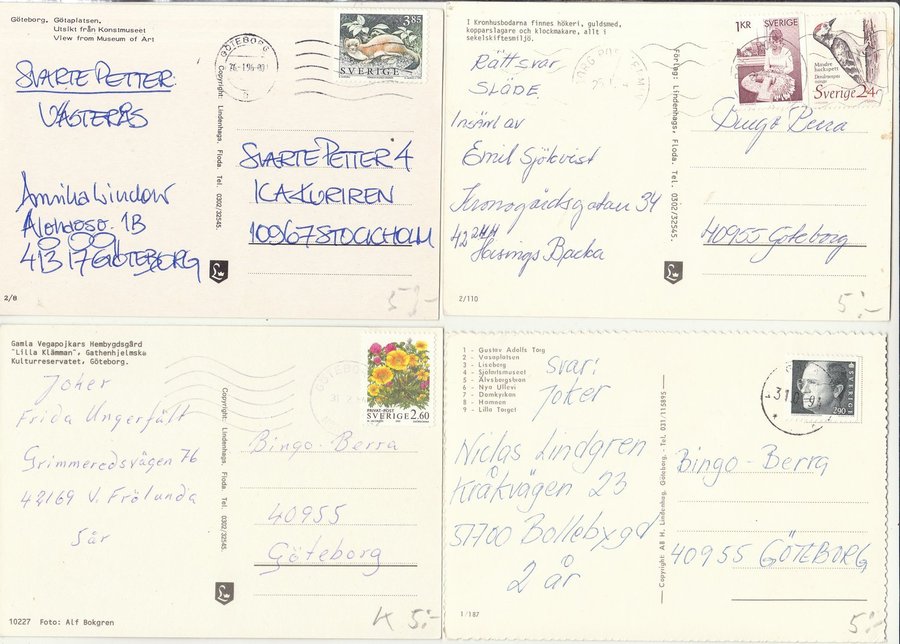 Göteborg. Götaplatsen.
Utsikt från Konstmuseet
View from Museum of Art
SVARTE PETTER
VÄSTERÅS
Annika Lindow
413 17 GÖTEBORG
2/8
Copyright: Lindenhags. Floda. Tel. 0302/32545.
GÖTEBORG
3.85
SVERIGE
SVARTE PETTER 4
ICA-KURIREN
10967 STOCKHOLM
5:-
I Kronhusbodarna finnes hökeri, guldsmed,
kopparslagare och klockmakare, allt i
sekelskiftesmiljö.
Rättsvar
SLÄDE
Insänt av
Emil Sjökvist
Kronogårdsgatan 34
42244
Hisings Backa
2/110
Förlag: Lindenhags, Floda. Tel. 0302/32545.
1KR SVERIGE
Mindre hackspett
Sverige 2.40
Bingo Berra
40955 Göteborg
5:-
Gamla Vegapojkars Hembygdsgård
"Lilla Klämman", Gathenhjelmska
Kulturreservatet, Göteborg.
Joker
Frida Ungerfält
Grimmeredsvägen 76
42169 V. Frölunda
5år
10227 Foto: Alf Bokgren
Copyright: Lindenhags. Floda. Tel. 0302/32545.
PRIVAT-POST
SVERIGE 2.60
Bingo-Berra
40955
Göteborg
K 5:-
1 - Gustav Adolfs Torg
2 - Vasaplatsen
3 - Liseberg
4 - Sjöfartsmuseet
5 - Älvsborgsbron
6 - Nya Ullevi
7 - Domkyrkan
8 - Hamnen
9 - Lilla Torget
svar:
Joker
Niclas Lindgren
Kråkvägen 23
51700 Bollebygd
2 år
1/187
Copyright: AB H. Lindenhag, Göteborg. - Tel. 031/115895
SVERIGE
290
Bingo-Berra
40955 GÖTEBORG
5:-